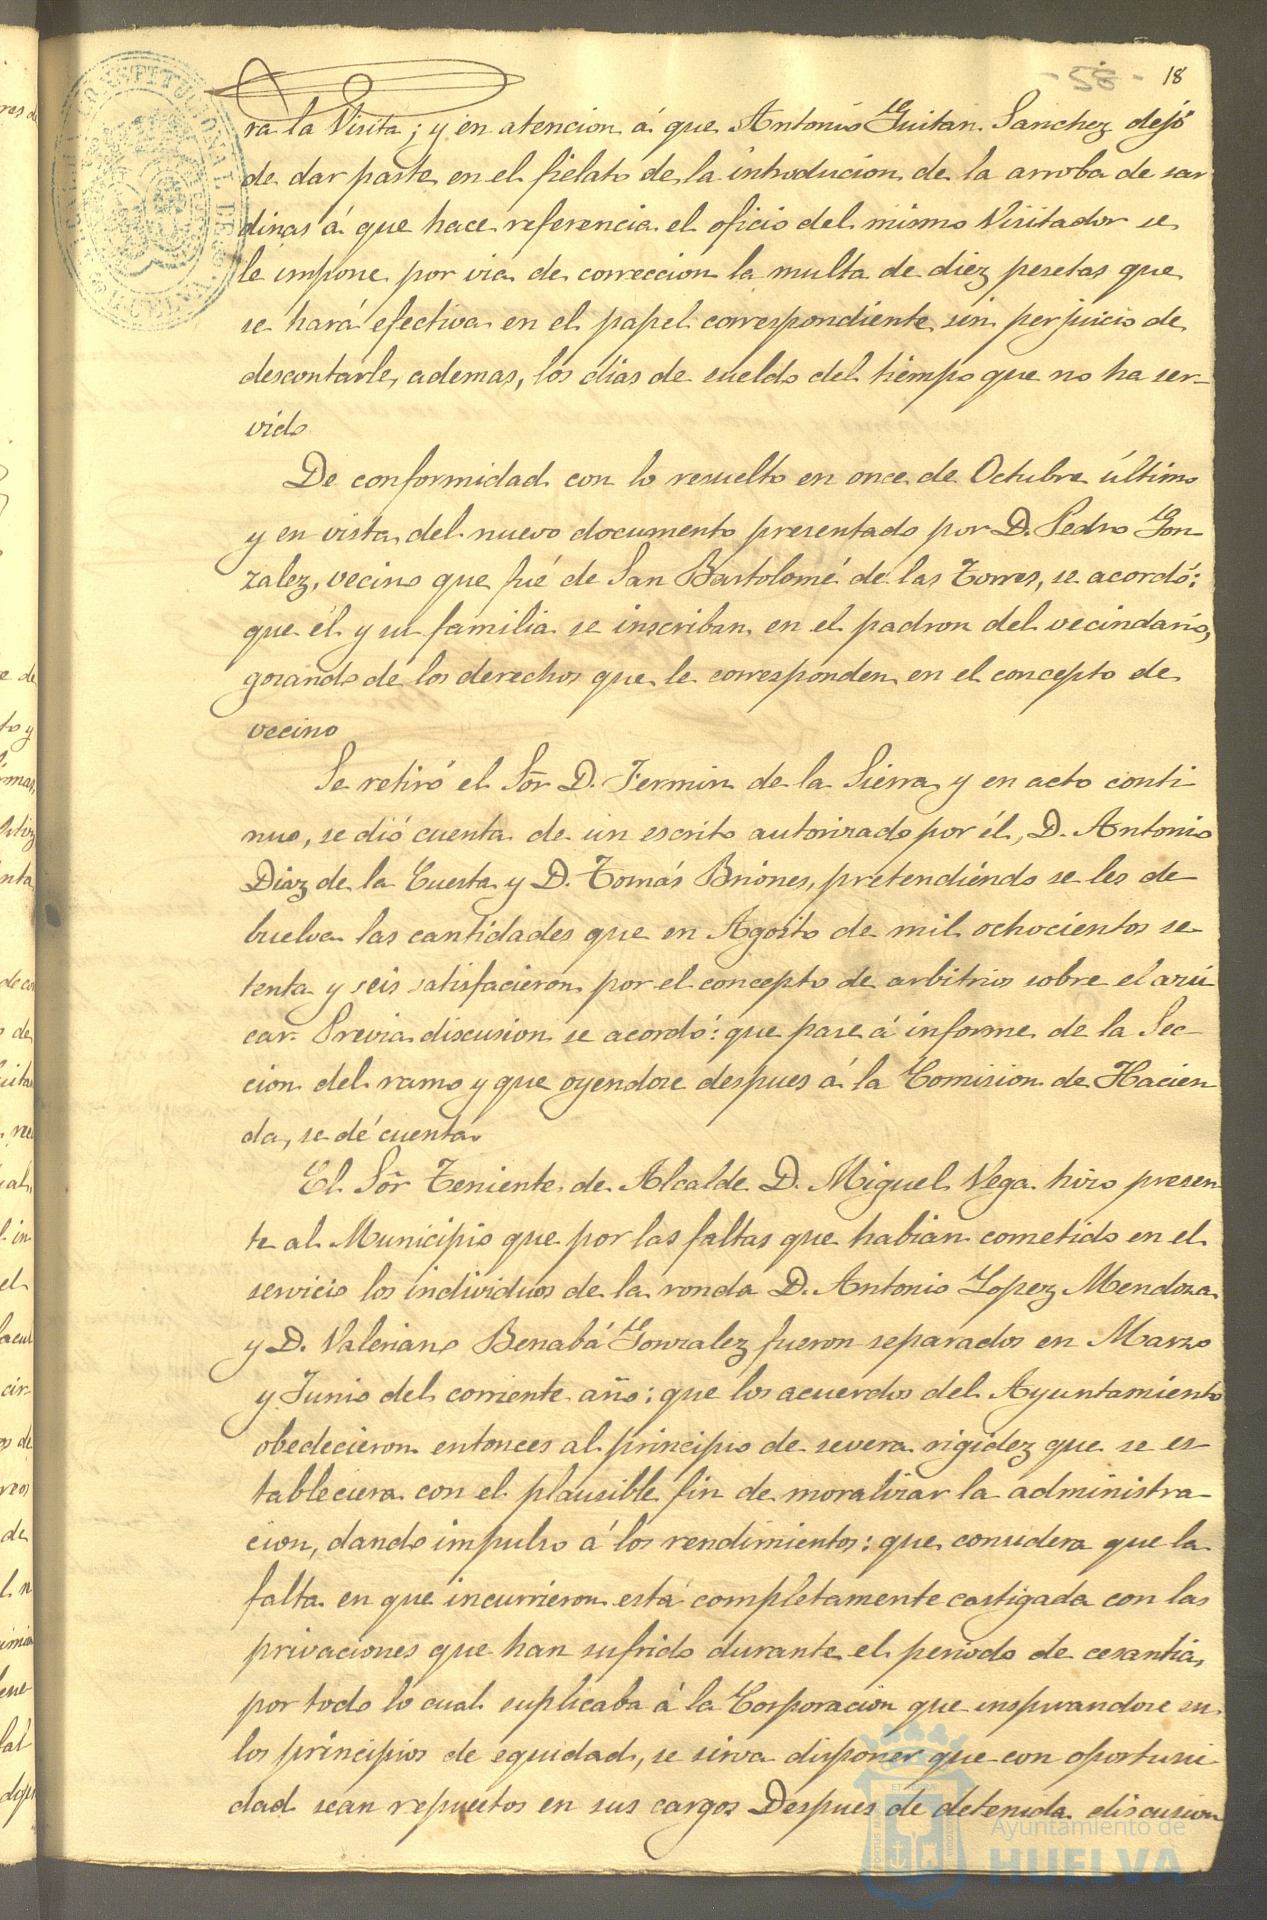 -58- 18
ra la Visita; y en atencion á que Antonio Guitan Sanchez dejó
de dar parte en el fielato de la introducion de la arroba de sar
dinas á que hace referencia el oficio del mismo Visitador se
le impone por via de correccion la multa de diez pesetas que
se hará efectiva en el papel correspondiente sin perjuicio de
descontarle, ademas, los dias de sueldo del tiempo que no ha ser-
vido
De conformidad con lo resuelto en once de Octubre último
y en vista del nuevo documento presentado por D. Pedro Gon
zalez, vecino que fué de San Bartolomé de las Torres, se acordó:
que él y su familia se inscriban en el padron del vecindario,
gozando de los derechos que le corresponden en el concepto de
vecino
Se retiró el Sõr D. Fermin de la Sierra y en acto conti
nuo, se dió cuenta de un escrito autorizado por él, D. Antonio
Diaz de la Cuesta y D. Tomás Briones, pretendiendo se les de
buelva las cantidades que en Agosto de mil ochocientos se-
tenta y seis satisfacieron por el concepto de arbitrios sobre el azú
car. Previa discusion se acordó: que pase á informe de la Sec-
cion del ramo y que oyendose despues á la Comision de Hacien
da, se dé cuenta.
El Sõr Teniente de Alcalde D. Miguel Vega hizo presen
te al Municipio que por las faltas que habian cometido en el
servicio los individuos de la ronda D. Antonio Lopez Mendoza
y D. Valeriano Benabá Gonzalez fueron separados en Marzo
y Junio del corriente año: que los acuerdos del Ayuntamiento
obedecieron entonces al principio de severa rigidez que se es-
tableciera con el plausible fin de moralizar la administra-
cion, dando impulso á los rendimientos: que considera que la
falta en que incurrieron está completamente castigada con las
privaciones que han sufrido durante el periodo de cesantia,
por todo lo cual suplicaba á la Corporacion que inspirandose en
los principios de equidad, se sirva disponer que con oportuni-
dad sean repuestos en sus cargos Despues de detenida discusion
Ayuntamiento de
HUELVA